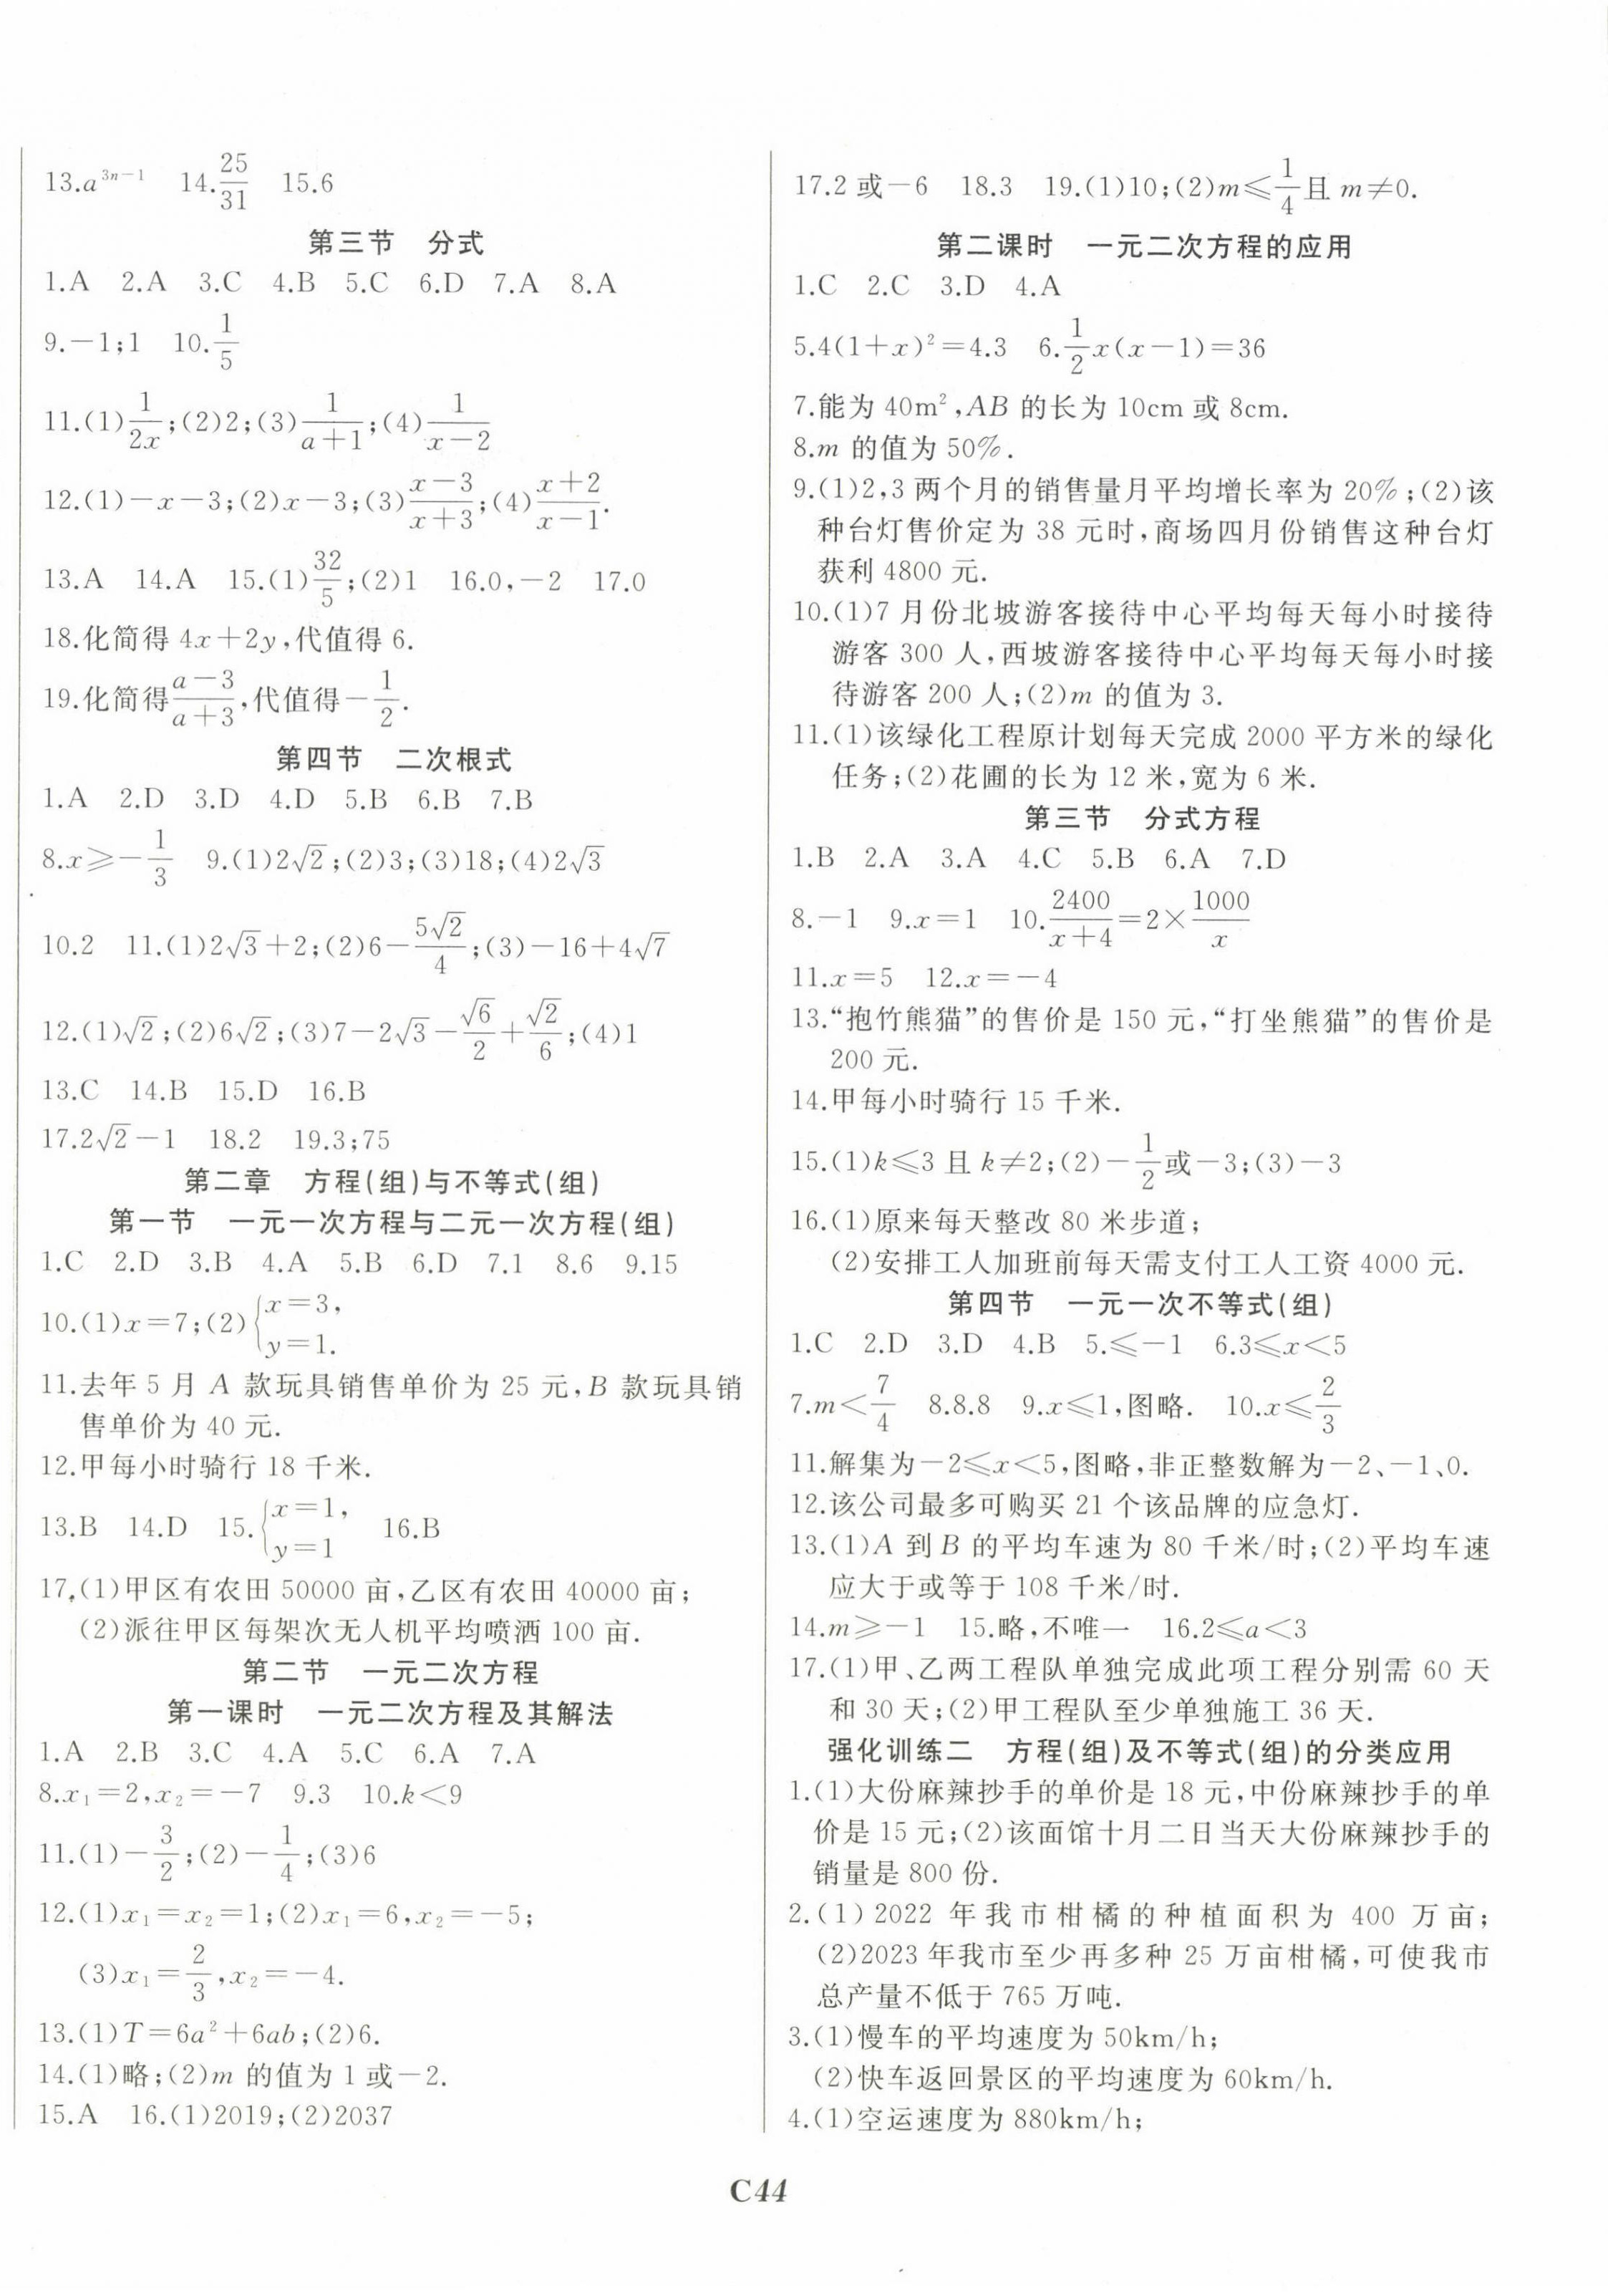 13.a³ⁿ⁻¹ 14.25/31 15.6
第三节 分式
1.A 2.A 3.C 4.B 5.C 6.D 7.A 8.A
9.－1;1 10.1/5
11.(1)1/(2x);(2)2;(3)1/(a＋1);(4)1/(x－2)
12.(1)－x－3;(2)x－3;(3)(x－3)/(x＋3);(4)(x＋2)/(x－1).
13.A 14.A 15.(1)32/5;(2)1 16.0,－2 17.0
18.化简得 4x＋2y,代值得 6.
19.化简得(a－3)/(a＋3),代值得－1/2.
第四节 二次根式
1.A 2.D 3.D 4.D 5.B 6.B 7.B
8.x≥－1/3 9.(1)2√2;(2)3;(3)18;(4)2√3
10.2 11.(1)2√3＋2;(2)6－5√2/4;(3)－16＋4√7
12.(1)√2;(2)6√2;(3)7－2√3－√6/2＋√2/6;(4)1
13.C 14.B 15.D 16.B
17.2√2－1 18.2 19.3;75
第二章 方程(组)与不等式(组)
第一节 一元一次方程与二元一次方程(组)
1.C 2.D 3.B 4.A 5.B 6.D 7.1 8.6 9.15
10.(1)x＝7;(2){x＝3,
y＝1.
11.去年 5 月 A 款玩具销售单价为 25 元,B 款玩具销
售单价为 40 元.
12.甲每小时骑行 18 千米.
13.B 14.D 15.{x＝1, 16.B
y＝1
17.(1)甲区有农田 50000 亩,乙区有农田 40000 亩;
(2)派往甲区每架次无人机平均喷洒 100 亩.
第二节 一元二次方程
第一课时 一元二次方程及其解法
1.A 2.B 3.C 4.A 5.C 6.A 7.A
8.x₁＝2,x₂＝－7 9.3 10.k＜9
11.(1)－3/2;(2)－1/4;(3)6
12.(1)x₁＝x₂＝1;(2)x₁＝6,x₂＝－5;
(3)x₁＝2/3,x₂＝－4.
13.(1)T＝6a²＋6ab;(2)6.
14.(1)略;(2)m 的值为 1 或－2.
15.A 16.(1)2019;(2)2037
17.2 或－6 18.3 19.(1)10;(2)m≤1/4且 m≠0.
第二课时 一元二次方程的应用
1.C 2.C 3.D 4.A
5.4(1＋x)²＝4.3 6.1/2x(x－1)＝36
7.能为 40m²,AB 的长为 10cm 或 8cm.
8.m 的值为 50%.
9.(1)2,3 两个月的销售量月平均增长率为 20%;(2)该
种台灯售价定为 38 元时,商场四月份销售这种台灯
获利 4800 元.
10.(1)7 月份北坡游客接待中心平均每天每小时接待
游客 300 人,西坡游客接待中心平均每天每小时接
待游客 200 人;(2)m 的值为 3.
11.(1)该绿化工程原计划每天完成 2000 平方米的绿化
任务;(2)花圃的长为 12 米,宽为 6 米.
第三节 分式方程
1.B 2.A 3.A 4.C 5.B 6.A 7.D
8.－1 9.x＝1 10.2400/(x＋4)＝2×1000/x
11.x＝5 12.x＝－4
13.“抱竹熊猫”的售价是 150 元,“打坐熊猫”的售价是
200 元.
14.甲每小时骑行 15 千米.
15.(1)k≤3 且 k≠2;(2)－1/2或－3;(3)－3
16.(1)原来每天整改 80 米步道;
(2)安排工人加班前每天需支付工人工资 4000 元.
第四节 一元一次不等式(组)
1.C 2.D 3.D 4.B 5.≤－1 6.3≤x＜5
7.m＜7/4 8.8.8 9.x≤1,图略. 10.x≤2/3
11.解集为－2≤x＜5,图略,非正整数解为－2、－1、0.
12.该公司最多可购买 21 个该品牌的应急灯.
13.(1)A 到 B 的平均车速为 80 千米/时;(2)平均车速
应大于或等于 108 千米/时.
14.m≥－1 15.略,不唯一 16.2≤a＜3
17.(1)甲、乙两工程队单独完成此项工程分别需 60 天
和 30 天;(2)甲工程队至少单独施工 36 天.
强化训练二 方程(组)及不等式(组)的分类应用
1.(1)大份麻辣抄手的单价是 18 元,中份麻辣抄手的单
价是 15 元;(2)该面馆十月二日当天大份麻辣抄手的
销量是 800 份.
2.(1)2022 年我市柑橘的种植面积为 400 万亩;
(2)2023 年我市至少再多种 25 万亩柑橘,可使我市
总产量不低于 765 万吨.
3.(1)慢车的平均速度为 50km/h;
(2)快车返回景区的平均速度为 60km/h.
4.(1)空运速度为 880km/h;
C44